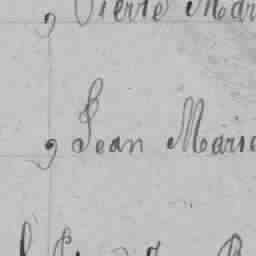 , Pierre Mar
, Jean Marie